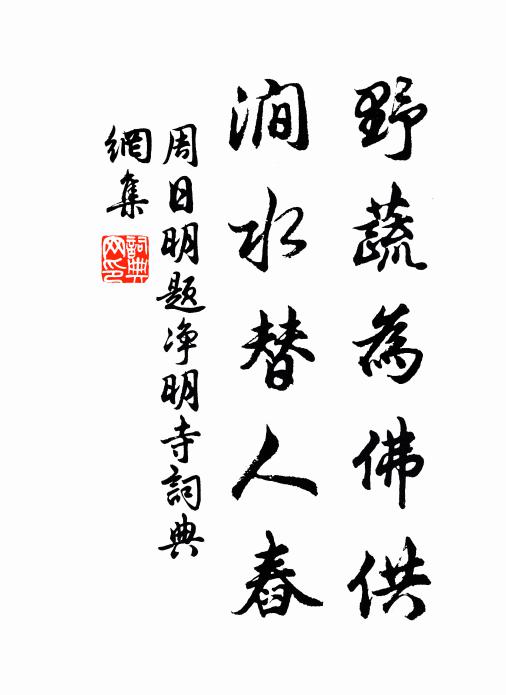 野蔬為佛供
澗水替人舂
周日明題净明寺詞典
網集
詞典網印